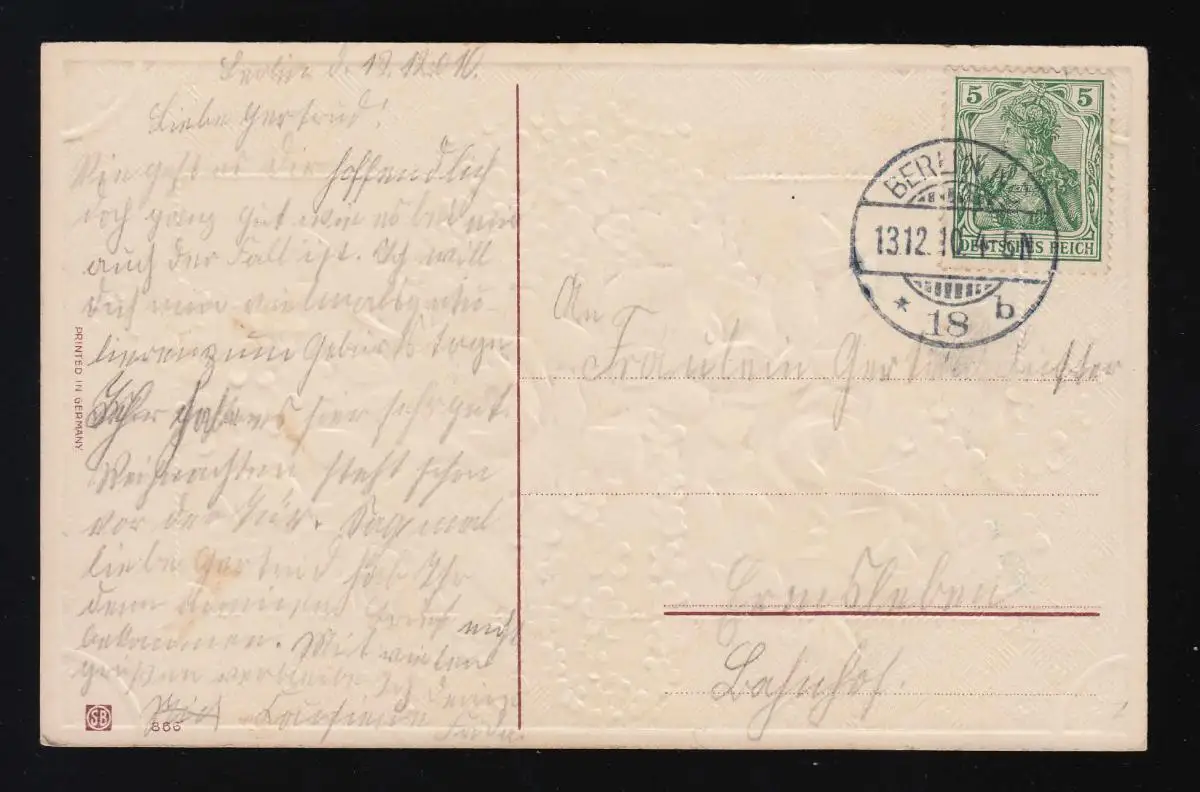 Berlin d. 12.12.010.
Liebe Gertrud!
Wie geht es dir hoffendlich
doch ganz gut wie es bei mir
auch der Fall ist. Ich will
dich nun vielmals gratu-
lieren zum Geburtstage
hier sehr gut.
Weihnachten steht schon
vor der Tür. Sag mal
liebe Gertrud habt Ihr
denn
bekommen. Mit vielen
grüßen verbleibe Ich deine
PRINTED IN GERMANY
SB
866
5 5
DEUTSCHES REICH
BERLIN N.
13.12.10. 4-5N
* 18 b
An
Fräulein
Ermsleben
Bahnhof.